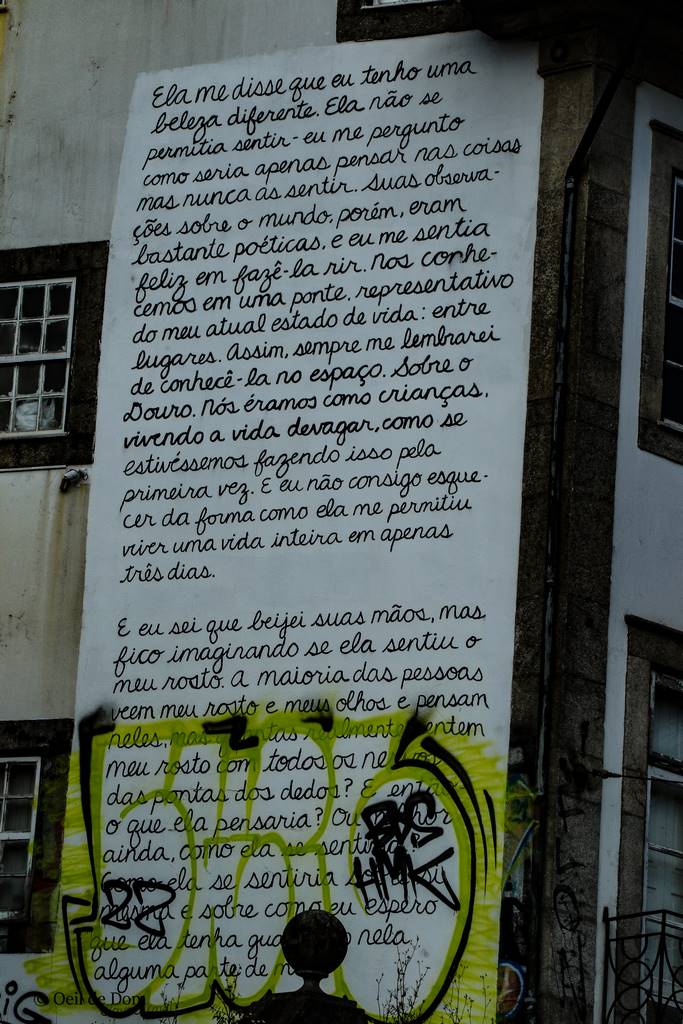 Ela me disse que eu tenho uma
beleza diferente. Ela não se
permitia sentir - eu me pergunto
como seria apenas pensar nas coisas
mas nunca as sentir. Suas observa-
ções sobre o mundo, porém, eram
bastante poéticas, e eu me sentia
feliz em fazê-la rir. Nos conhe-
cemos em uma ponte, representativo
do meu atual estado de vida: entre
lugares. Assim, sempre me lembrarei
de conhecê-la no espaço. Sobre o
Douro. Nós éramos como crianças,
vivendo a vida devagar, como se
estivéssemos fazendo isso pela
primeira vez. E eu não consigo esque-
cer da forma como ela me permitiu
viver uma vida inteira em apenas
três dias.
E eu sei que beijei suas mãos, mas
fico imaginando se ela sentiu o
meu rosto. A maioria das pessoas
veem meu rosto e meus olhos e pensam
neles, mas quantas realmente
meu rosto com todos os
das pontas dos dedos? E então
o que ela pensaria? Ou
ainda, como ela se
Como ela se sentiria
mesma e sobre como eu espero
que ela tenha nela
alguma parte de
© Oeil de Dom